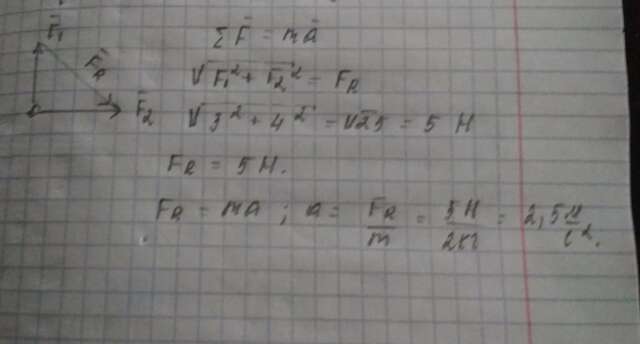 F̄₁
ΣF̄ = mā
F̄ᵣ
√F₁² + F₂² = Fᵣ
F̄₂
√3² + 4² = √25 = 5 Н
Fᵣ = 5 Н.
Fᵣ = ma ; a = Fᵣ/m = 5Н/2кг = 2,5 м/с².